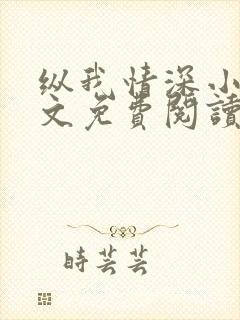 纵我情深小
文免費閱讀
時芸芸